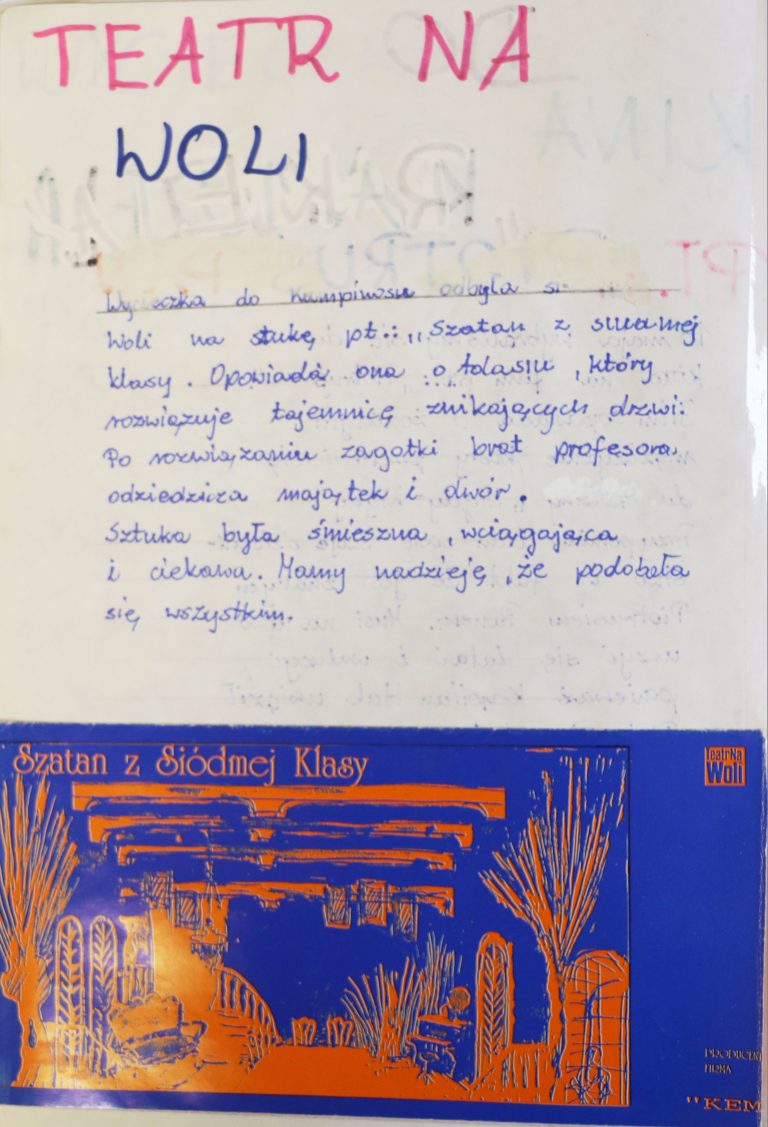 TEATR NA
WOLI
Wycieczka do Kampinosu odbyła si
Woli na stukę pt.: „Szatan z siudmej
klasy. Opowiada ona o Adasiu, który
rozwiązuje tajemnicę znikających drzwi.
Po rozwiązaniu zagatki brat profesora
odziedzicza majątek i dwór.
Sztuka była śmieszna, wciągająca
i ciekawa. Mamy nadzieję, że podobała
się wszystkim.
Szatan z Siódmej Klasy
Teatr Na
Woli
PRODUCEN
FIRMA
"KEM